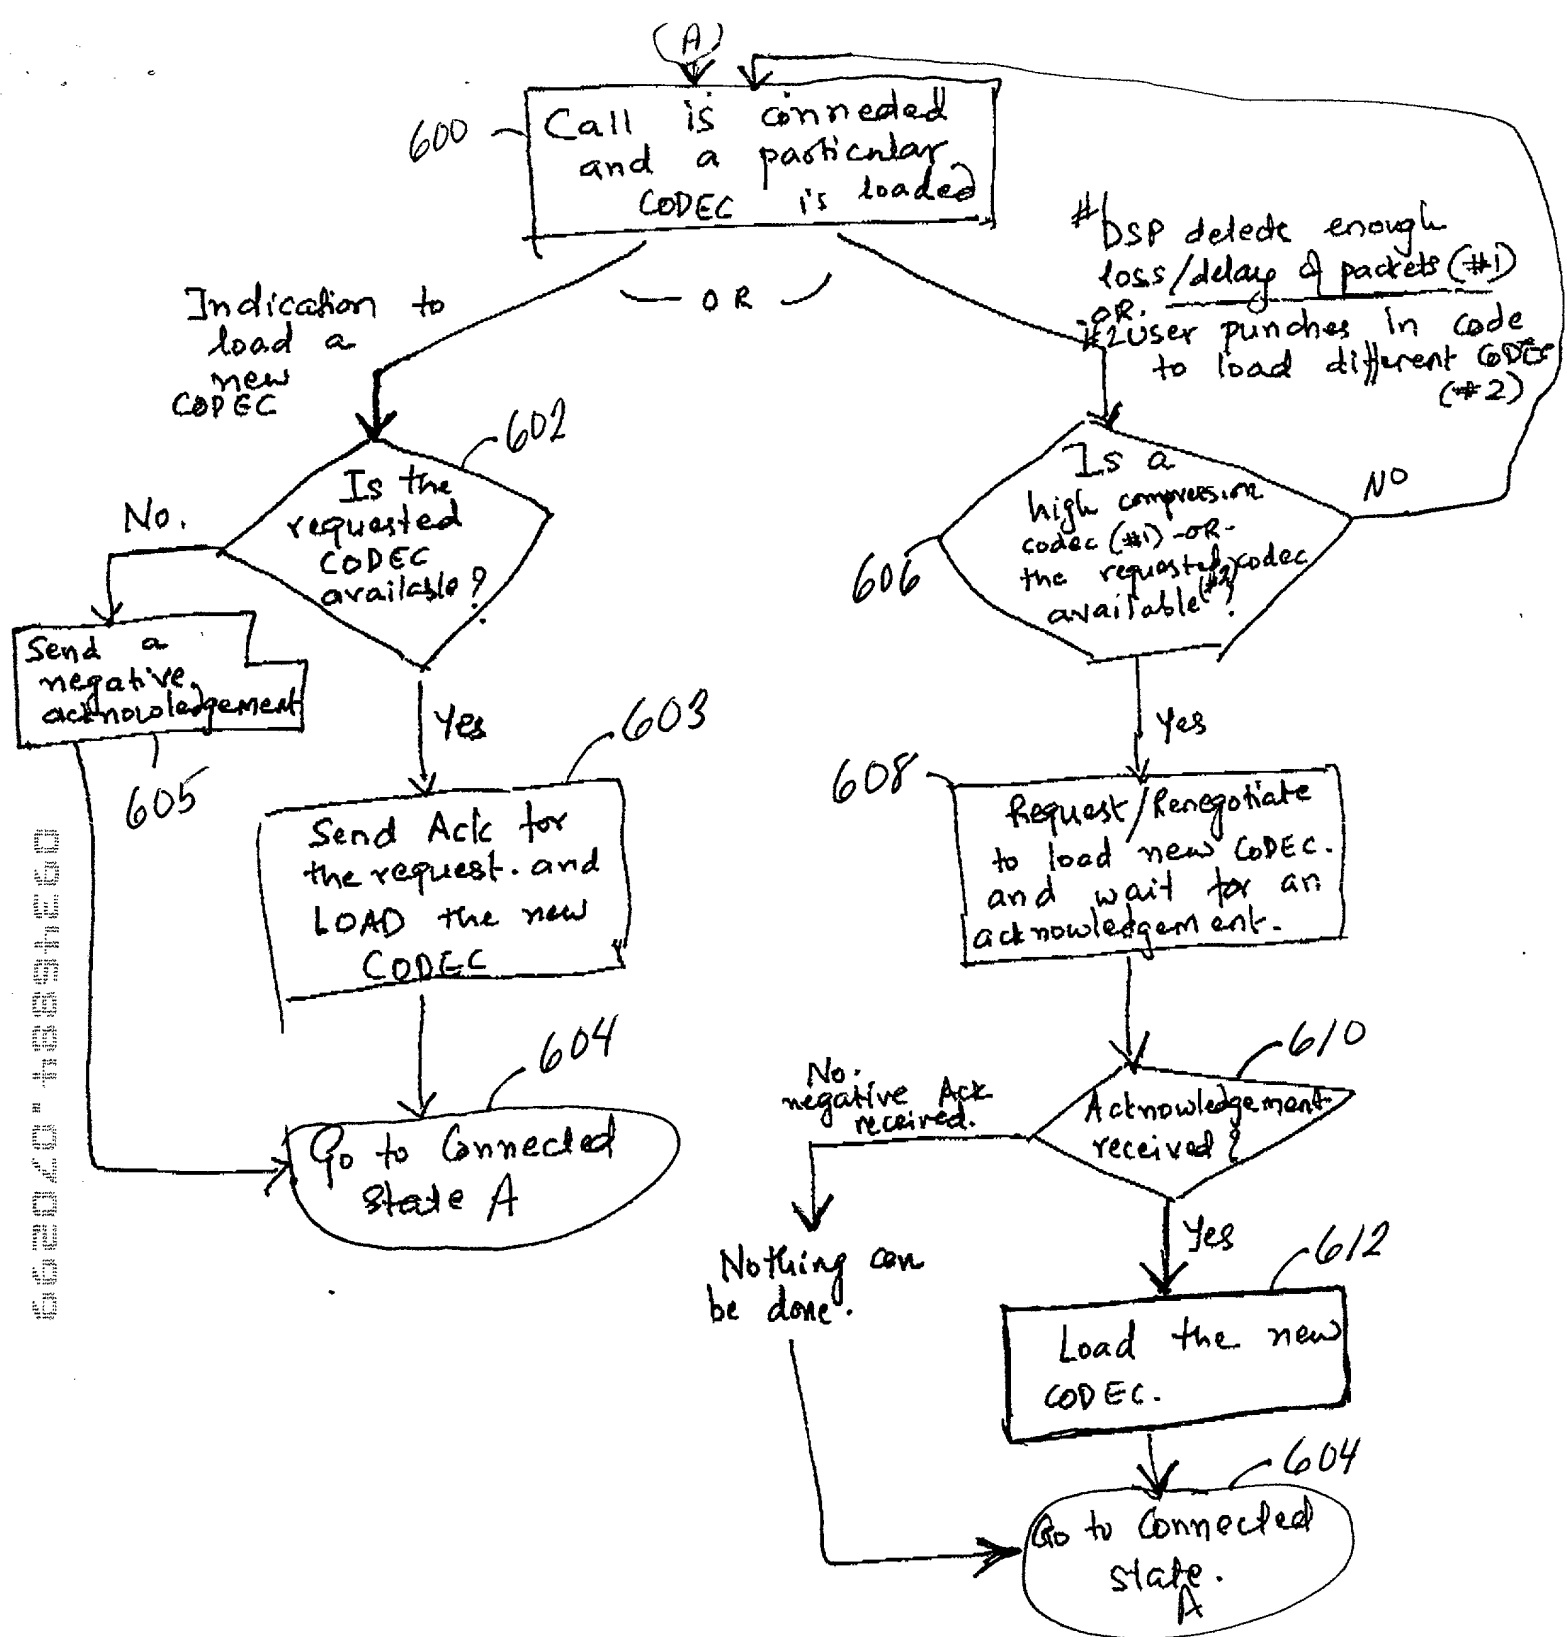 (A)
600
Call is connected
and a particular
CODEC is loaded
Indication to
load a
new
CODEC
OR
# DSP detects enough
loss/delay of packets (#1)
-OR.
#2 user punches in code
to load different CODEC
(#2)
602
Is the
requested
CODEC
available?
No.
Send a
negative
acknowledgement
605
Yes
603
Send Ack for
the request. and
LOAD the new
CODEC
604
Go to Connected
state A
606
Is a
high compression
codec (#1) -OR-
the requested codec
available (#2)?
NO
Yes
608
Request/Renegotiate
to load new CODEC.
and wait for an
acknowledgement.
610
Acknowledgement
received?
No.
negative Ack
received.
Nothing can
be done.
Yes
612
Load the new
CODEC.
604
Go to Connected
state.
A